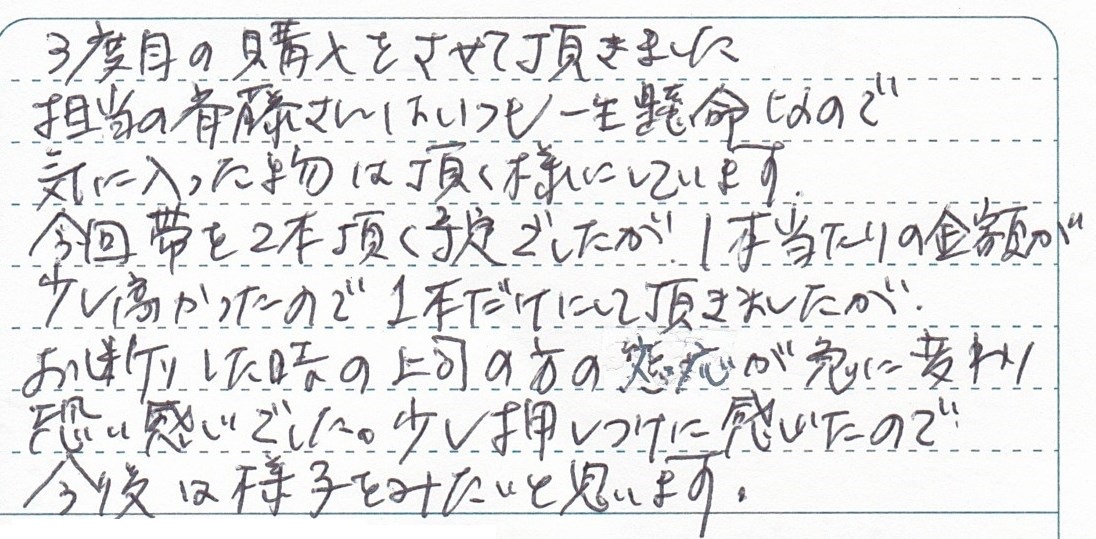 3度目の購入をさせて頂きました
担当の斉藤さんはいつも一生懸命なので
気に入った物は頂く様にしています.
今回帯を2本頂く予定でしたが.1本当たりの金額が
少し高かったので1本だけにして頂きましたが.
お断りした時の上司の方の態応が急に変わり
恐い感じでした。少し押しつけに感じたので
今後は様子をみたいと思います.